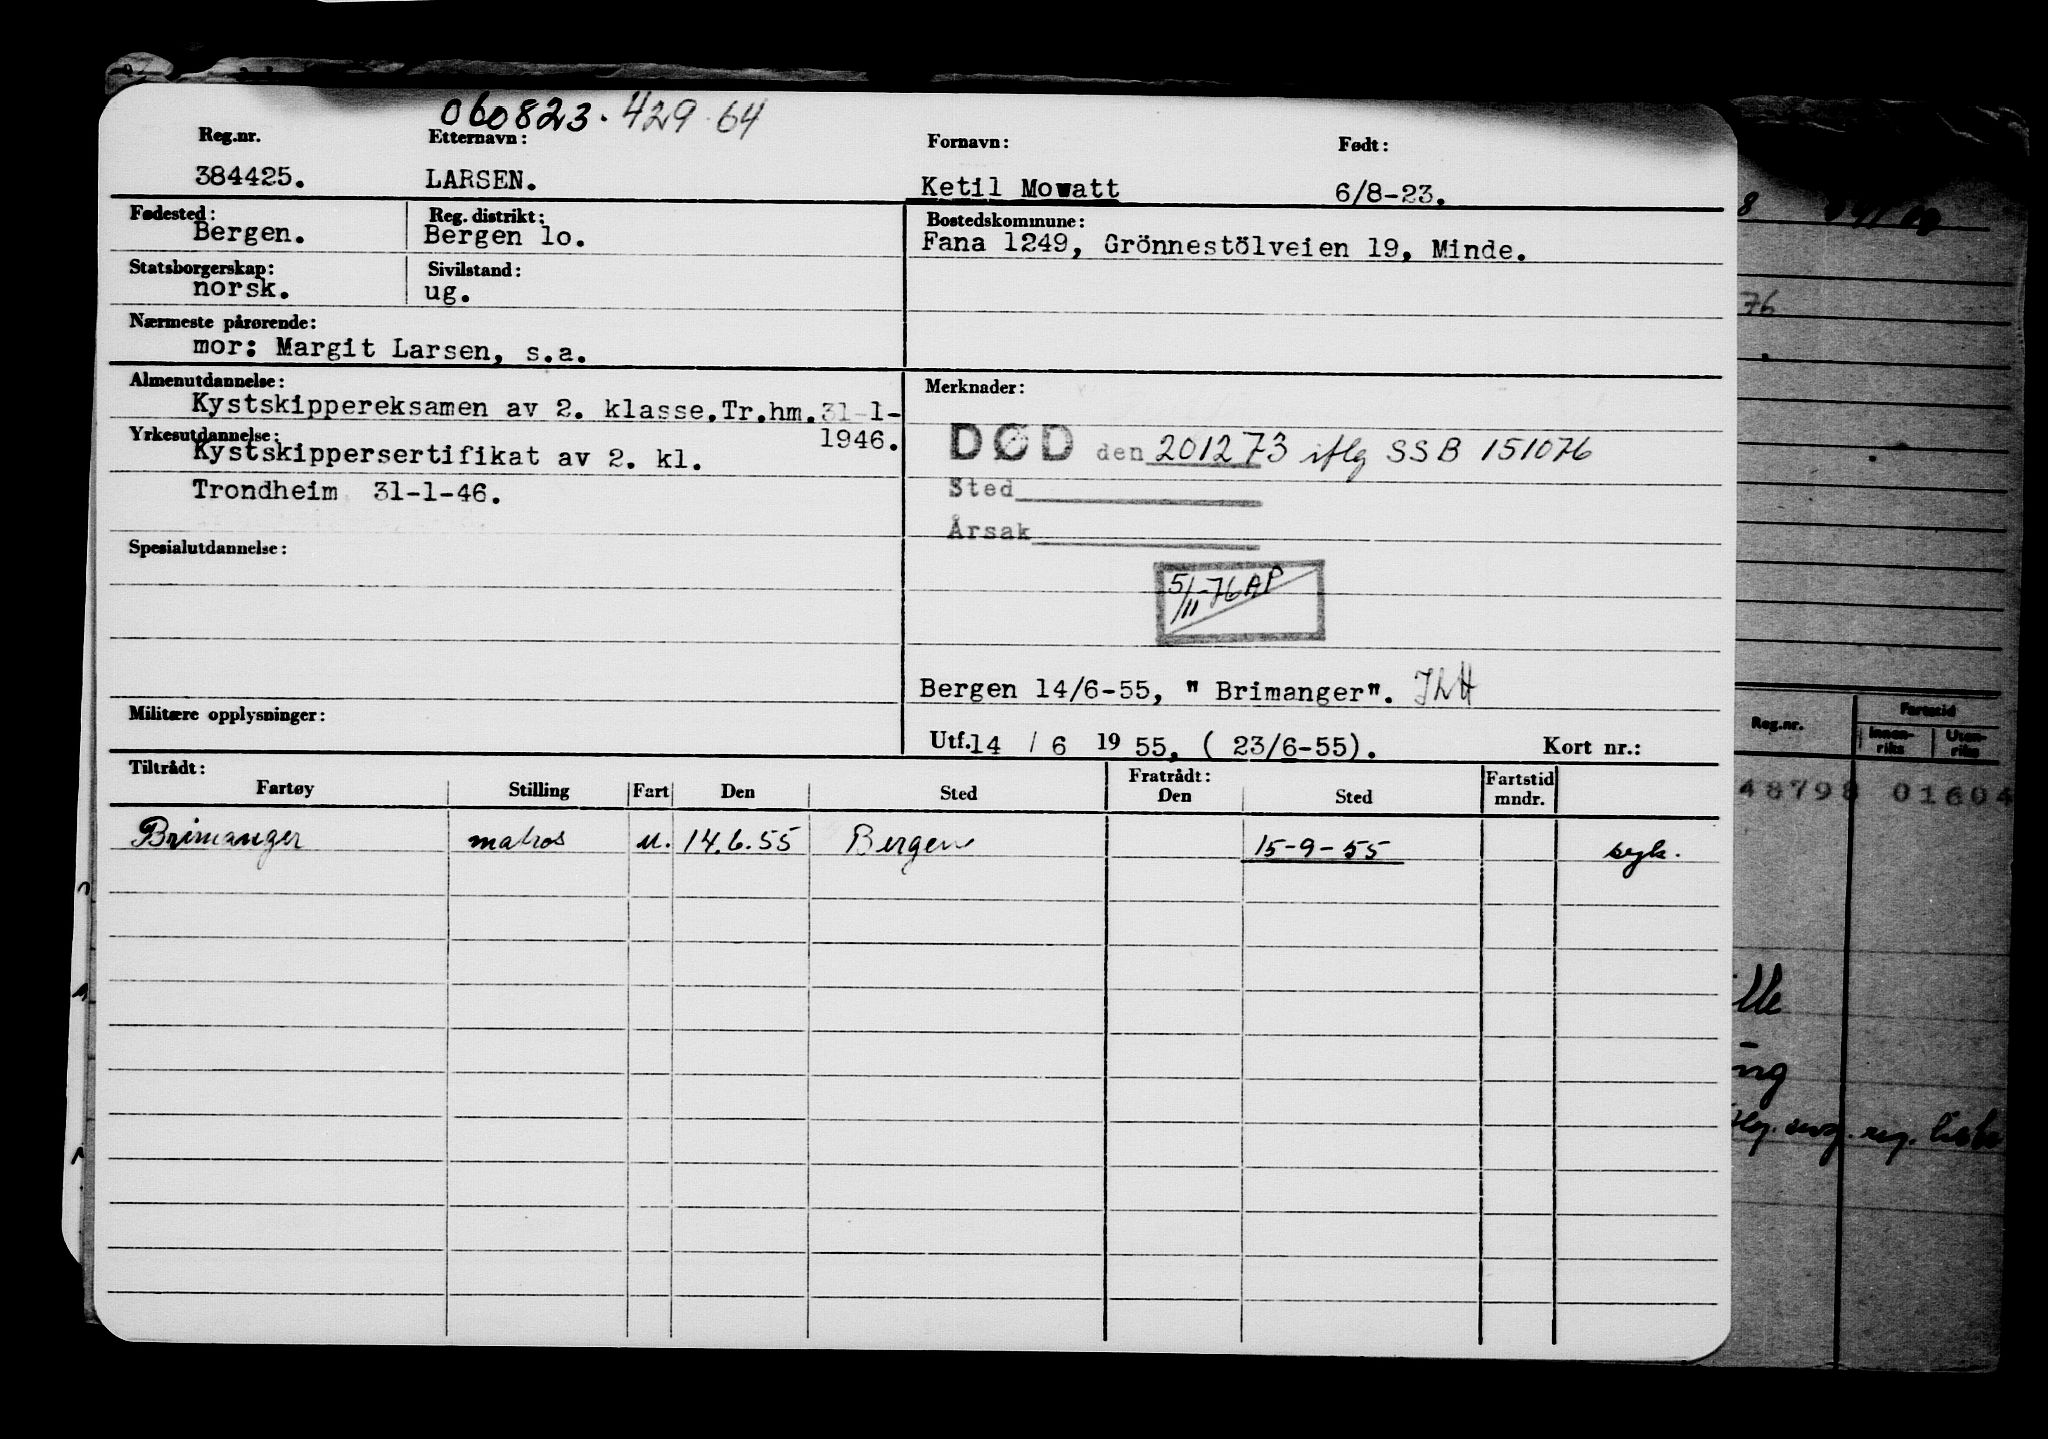 060823. 429 64
Reg.nr. Etternavn: Fornavn: Født:
384425. LARSEN. Ketil Mowatt 6/8-23.
Fødested: Reg. distrikt: Bostedskommune:
Bergen. Bergen lo. Fana 1249, Grönnestölveien 19, Minde.
Statsborgerskap: Sivilstand:
norsk. ug.
Nærmeste pårørende:
mor: Margit Larsen, s.a.
Almenutdannelse: Merknader:
Kystskippereksamen av 2. klasse.Tr.hm.31-1-
1946.
Yrkesutdannelse:
Kystskippersertifikat av 2. kl.
Trondheim 31-1-46.
DØD den 201273 iflg SSB 151076
Sted
Årsak
Spesialutdannelse:
5/11-76 AP
Bergen 14/6-55, " Brimanger".
Militære opplysninger:
Utf. 14 / 6 19 55, ( 23/6-55). Kort nr.:
Tiltrådt: Fratrådt: Fartstid
Fartøy Stilling Fart Den Sted Den Sted mndr.
Brimanger matros u. 14.6.55 Bergen 15-9-55 syk.
8
76
Reg.nr. Fartstid
Innen-riks Uten-riks
48798 01604